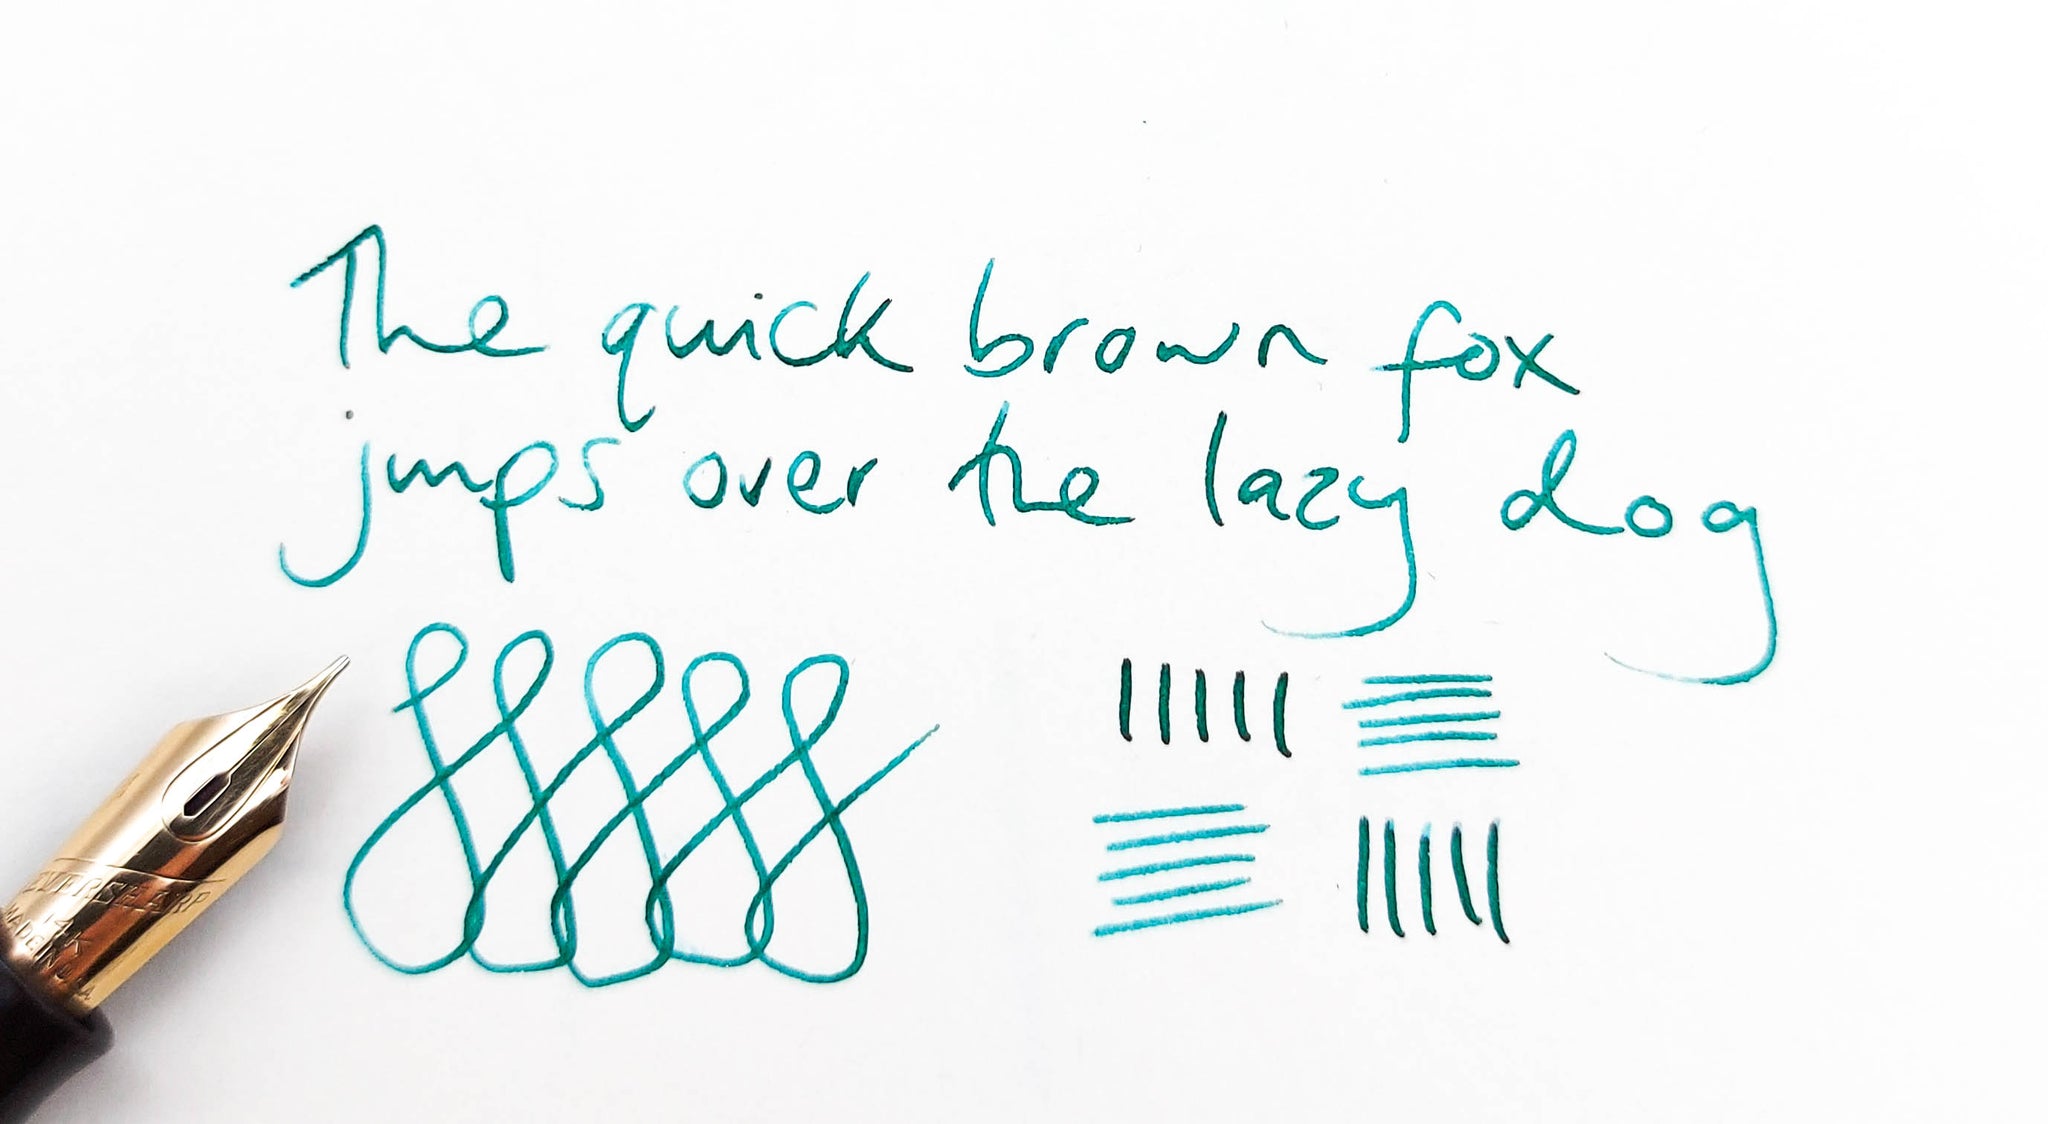 The quick brown fox
jumps over the lazy dog
EVERSHARP
14K
MADE IN U.S.A.